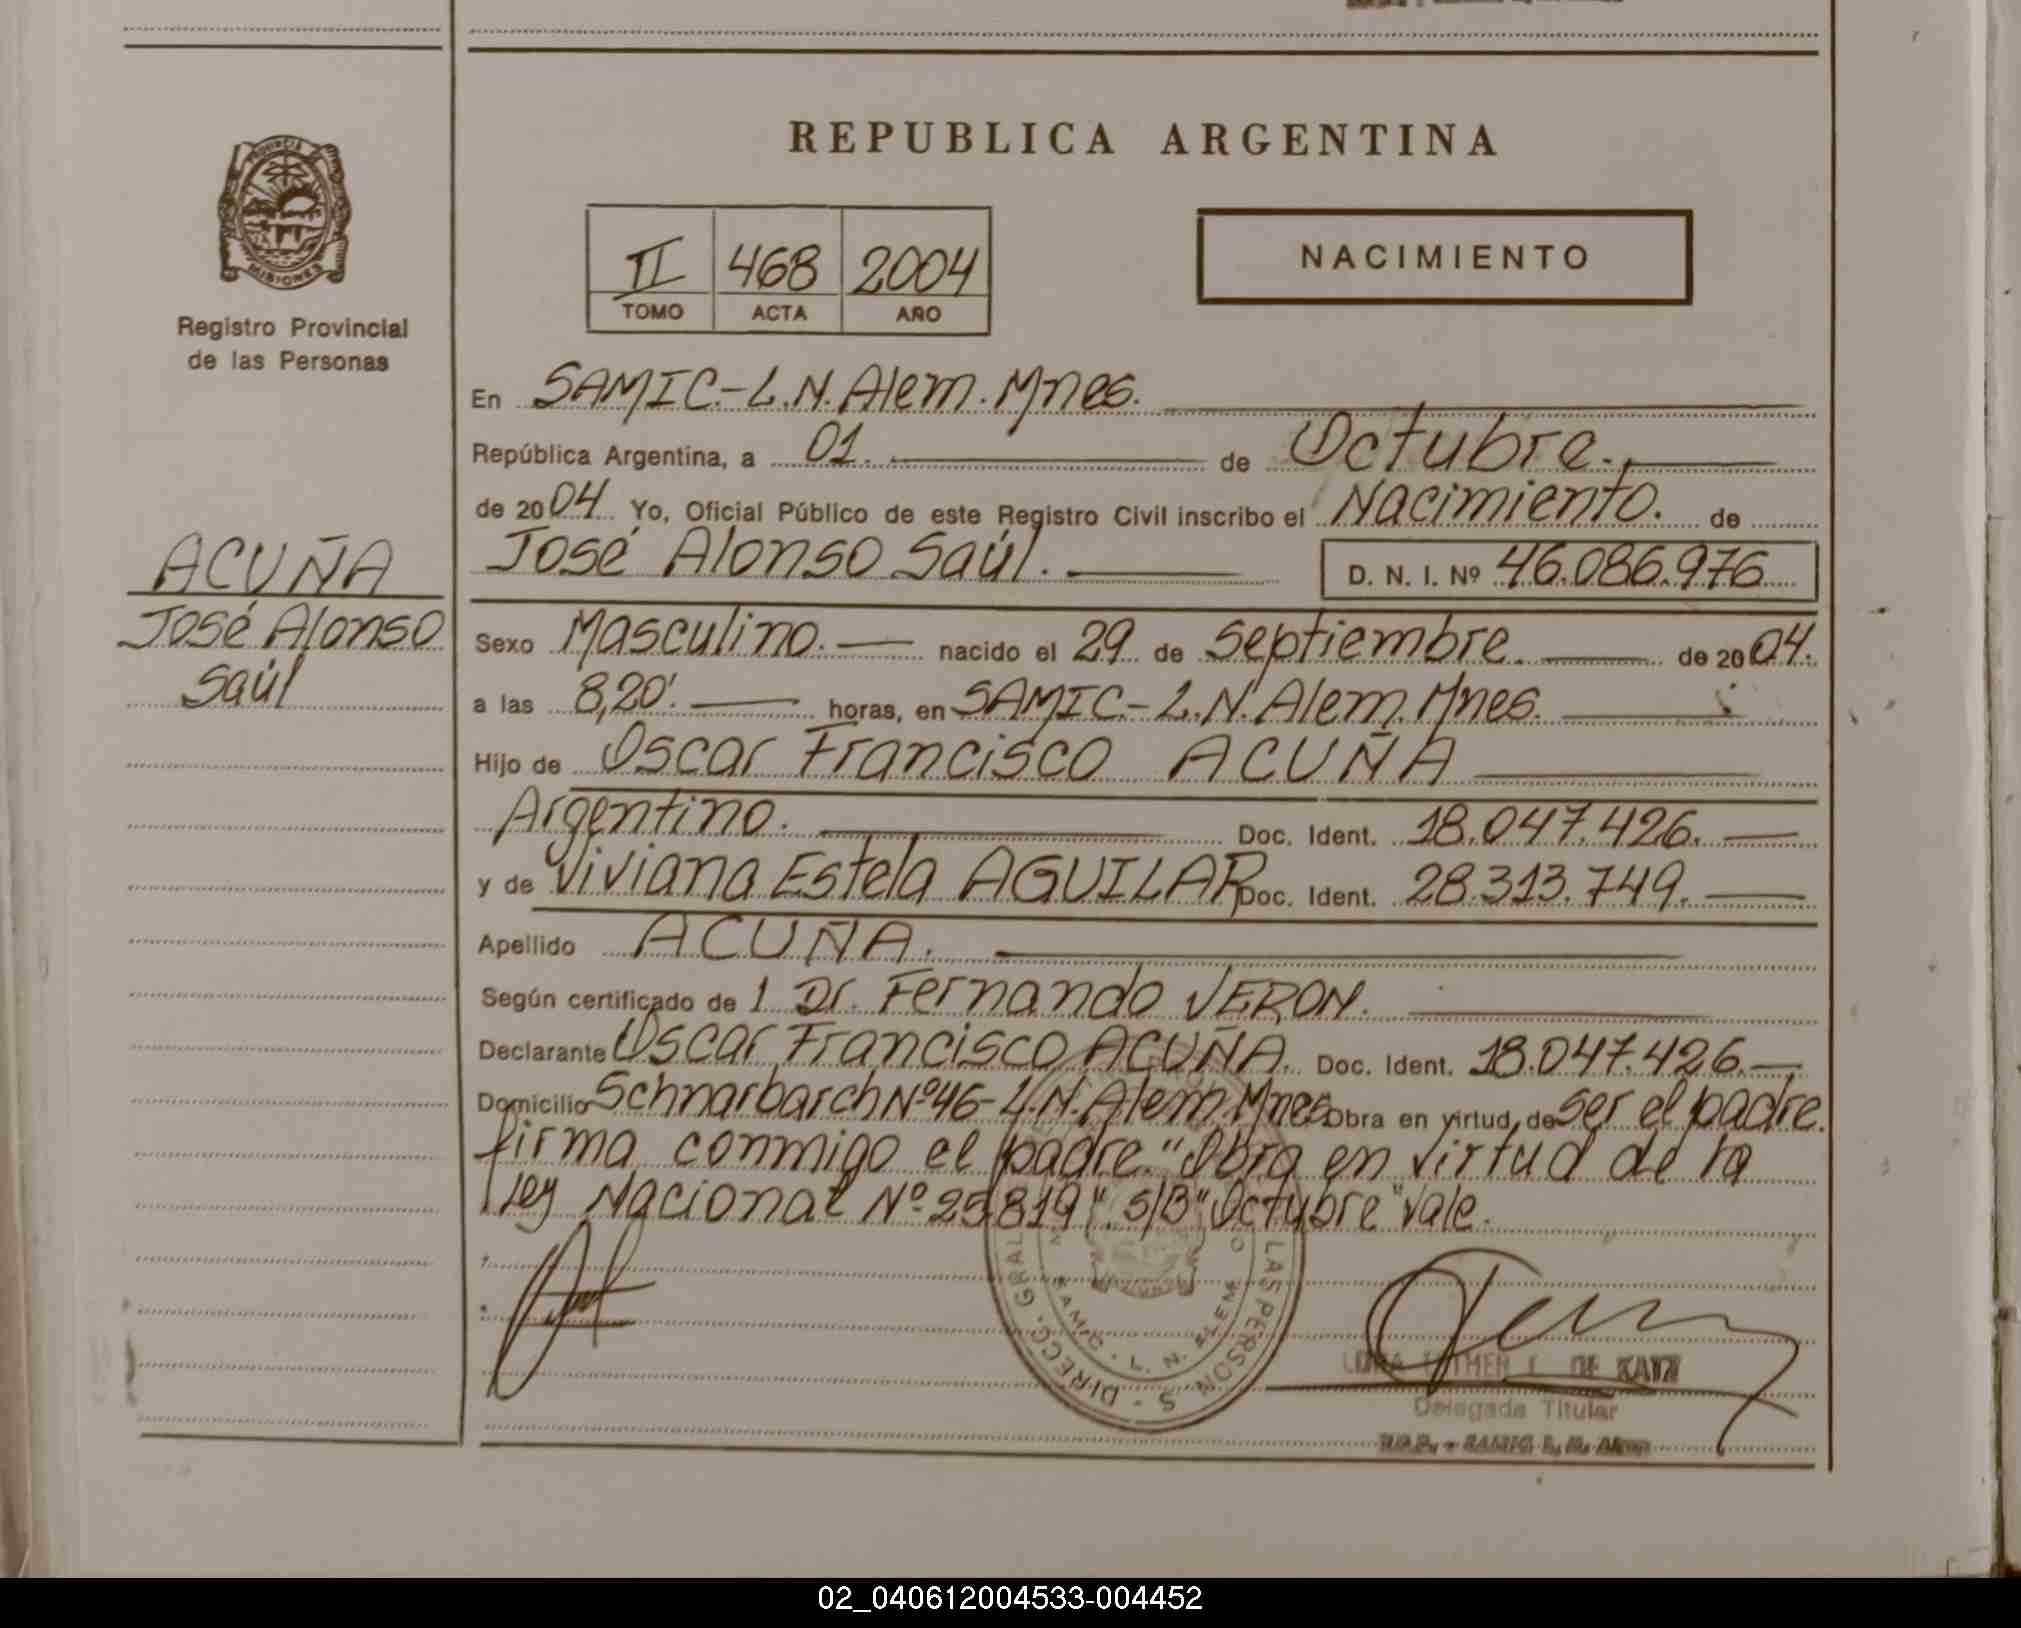 REPUBLICA ARGENTINA
PROVINCIA DE MISIONES
Registro Provincial
de las Personas
II 468 2004
TOMO ACTA AÑO
NACIMIENTO
ACUÑA
José Alonso
Saúl
En SAMIC.-L.N.Alem.Mnes.
República Argentina, a 01. de Octubre.
de 2004 Yo, Oficial Público de este Registro Civil inscribo el Nacimiento. de
José Alonso Saúl. D. N. I. Nº 46.086.976
Sexo Masculino. nacido el 29 de Septiembre. de 2004.
a las 8,20'. horas, en SAMIC.-L.N.Alem.Mnes.
Hijo de Oscar Francisco ACUÑA
Argentino. Doc. Ident. 18.047.426.
y de Viviana Estela AGUILAR Doc. Ident. 28.313.749.
Apellido ACUÑA.
Según certificado de 1 Dr. Fernando VERON.
Declarante Oscar Francisco ACUÑA. Doc. Ident. 18.047.426.
Domicilio Schnarbarch Nº46-L.N.Alem.Mnes. Obra en virtud de ser el padre.
firma conmigo el padre."Obra en virtud de la
ley Nacional Nº 25819". S/B "Octubre" Vale.
DIRECC. GRAL. LAS PERSONAS
SAMIC - L. N. ALEM
DE KATZ
Delegada Titular
SAMIC L. N. Alem
02_040612004533-004452